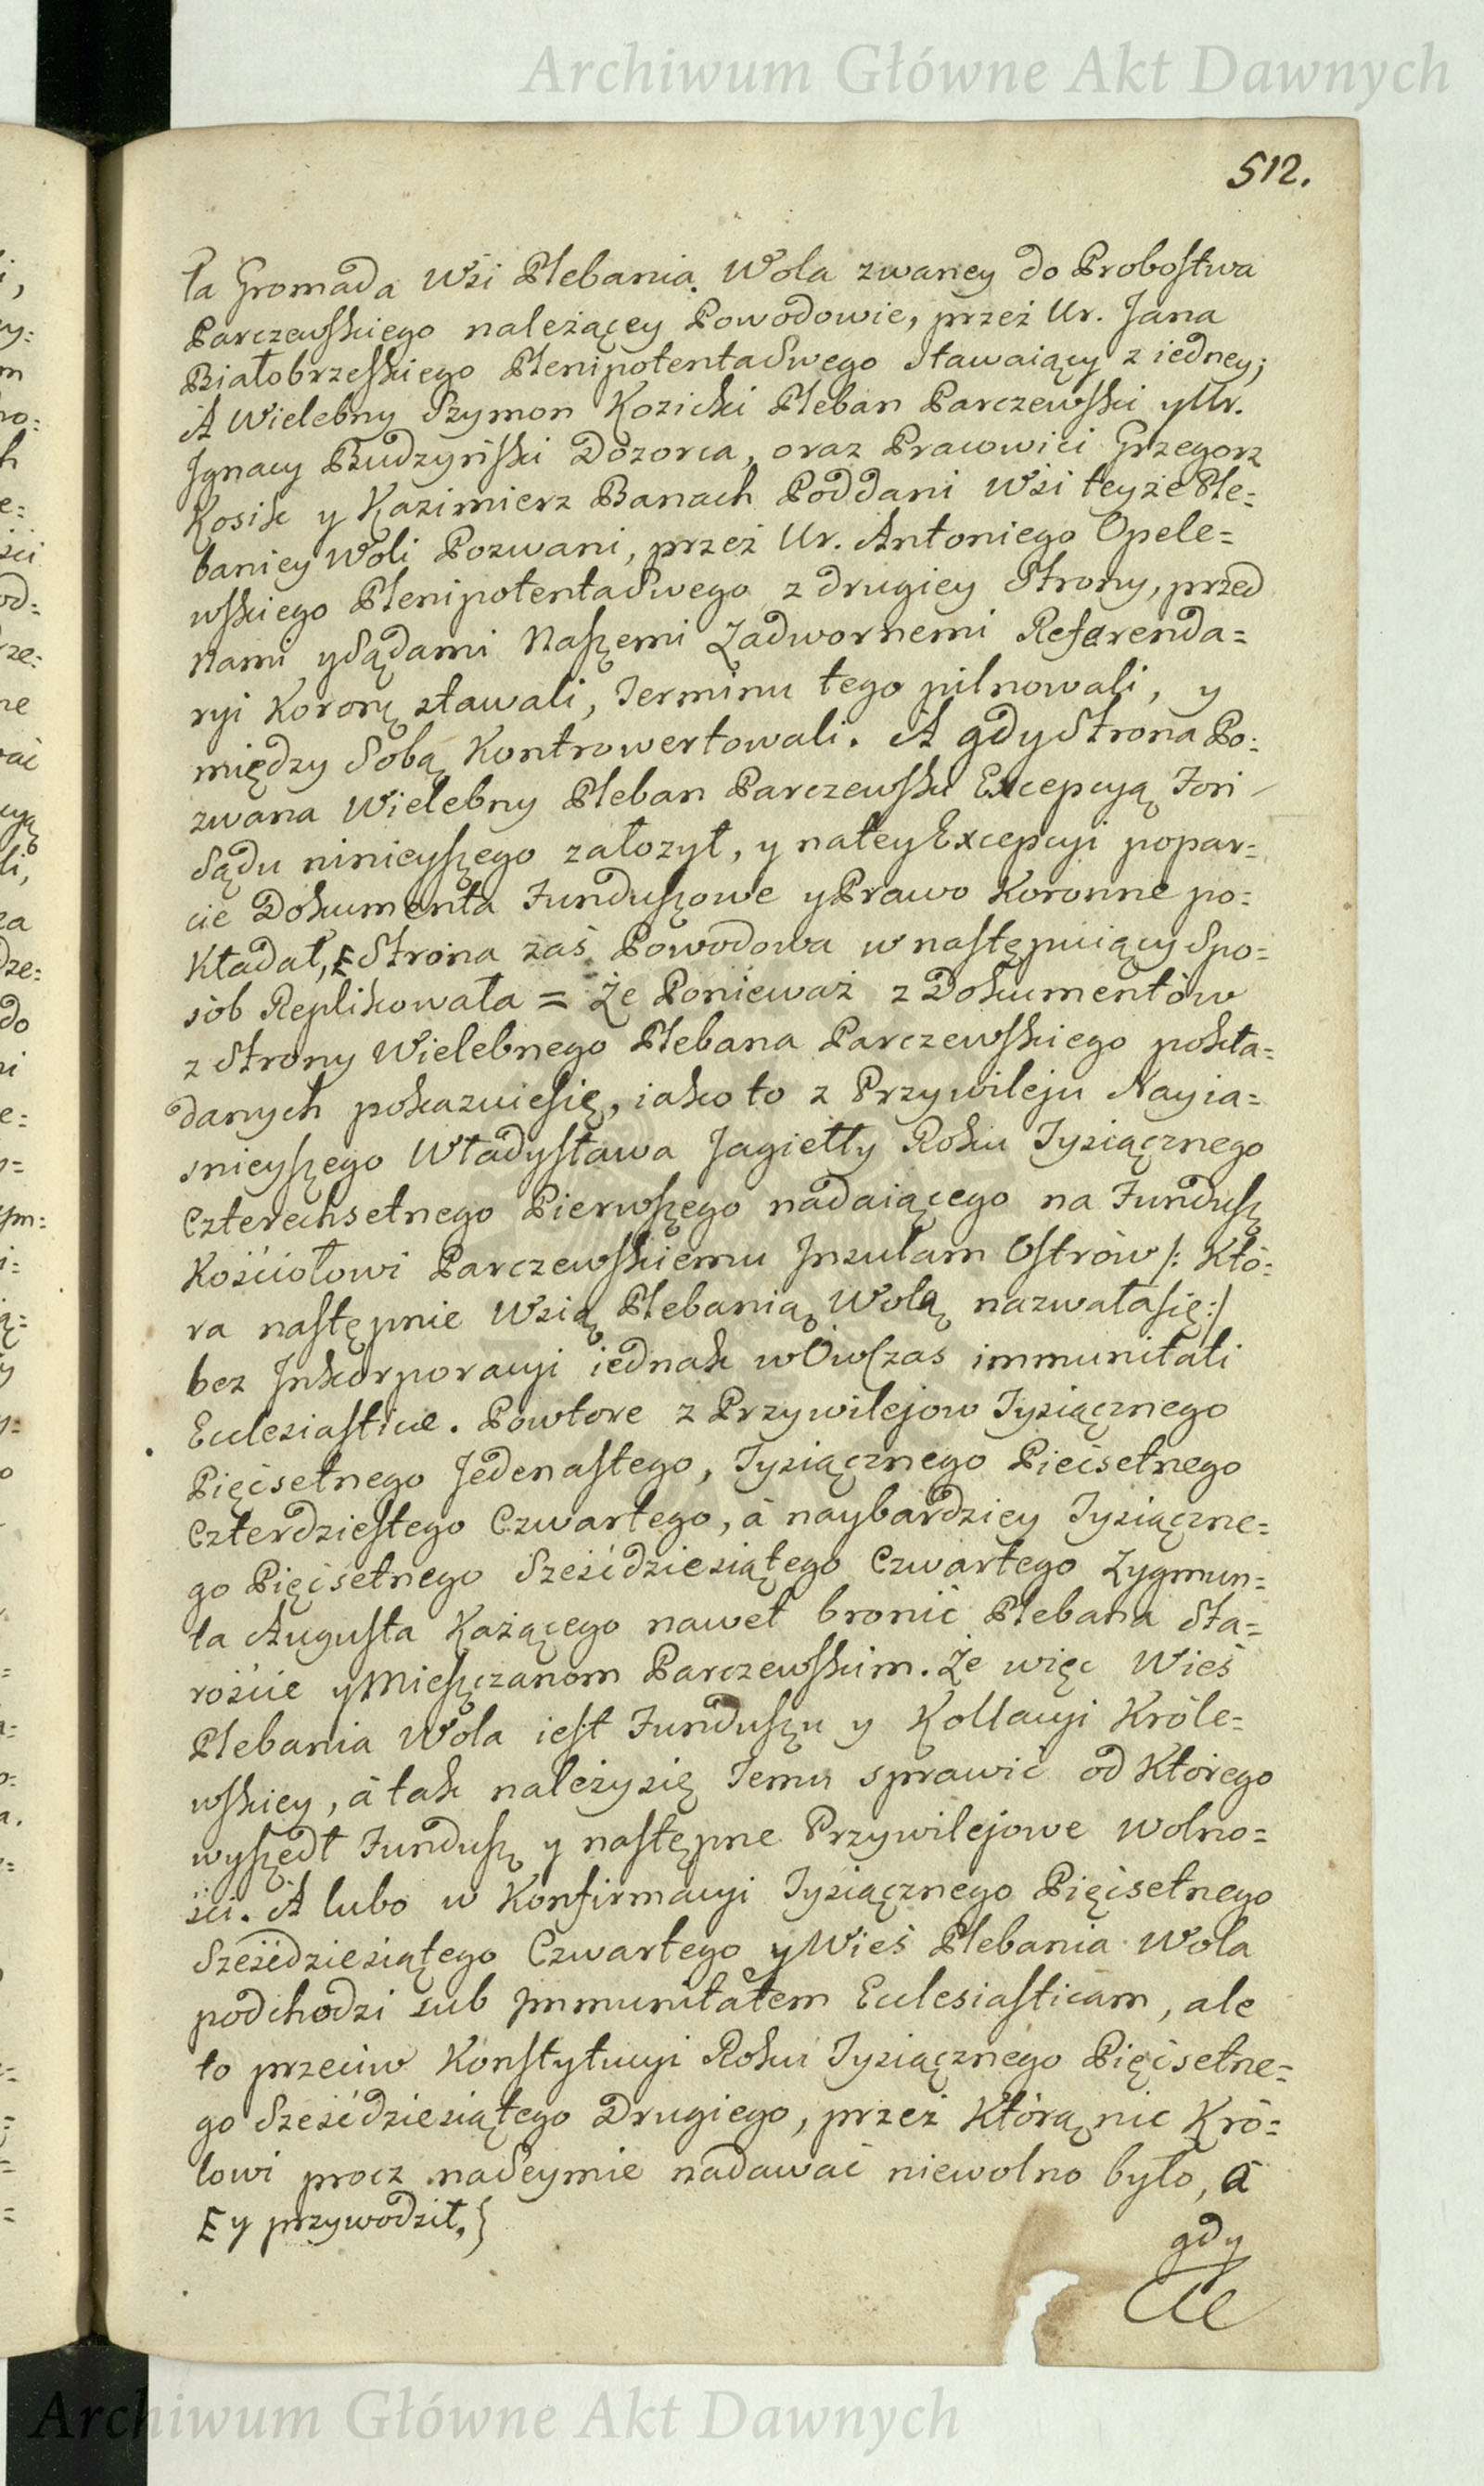 Archiwum Główne Akt Dawnych
512.
ła Gromada Wsi Plebania Wola zwaney do Probostwa
Parczewskiego należącey Powodowie, przez Ur. Jana
Białobrzeskiego Plenipotenta Swego stawaiący z iedney;
A Wielebny Szymon Kozicki Pleban Parczewski y Ur.
Ignacy Budzyński Dozorca, oraz Pracowici Grzegorz
Kosik y Kazimierz Banach Poddani Wsi teyże Ple=
baniey Woli Pozwani, przez Ur. Antoniego Opele=
wskiego Plenipotenta Swego z drugiey Strony, przed
Nami y Sądami Naszemi Zadwornemi Referenda=
ryi Koroney stawali, Terminu tego pilnowali, y
między Sobą Kontrowertowali. A gdy Strona Po=
zwana Wielebny Pleban Parczewski Excepcyą Fori
Sądu ninieyszego założył, y na tey Excepcyi popar=
cie Dokumenta Funduszowe y Prawo Koronne po=
kładał, [ Strona zaś Powodowa w następuiący Spo=
sób Replikowała = Że Ponieważ z Dokumentów
z Strony Wielebnego Plebana Parczewskiego pokła=
danych pokazuie się, iako to z Przywileju Nayia=
snieyszego Władysława Jagiełły Roku Tysiącznego
Czterechsetnego Pierwszego nadaiącego na Fundusz
Kościołowi Parczewskiemu Insulam Ostrów /: Któ=
ra następnie Wsią Plebanią Wolą nazwała się :/
bez Inkorporacyi iednak wówczas immunitati
Ecclesiasticæ. Powtore z Przywilejow Tysiącznego
Pięćsetnego Jedenastego, Tysiącznego Piećsetnego
Czterdziestego Czwartego, á naybardziey Tysiączne=
go Pięćsetnego Sześćdziesiątego Czwartego Zygmun=
ta Augusta Każącego nawet bronić Plebana Sta=
roście y Mieszczanom Parczewskim. Że więc Wieś
Plebania Wola iest Funduszu y Kollacyi Króle=
wskiey, á tak należy się Temu sprawić od Którego
wyszedł Fundusz y następne Przywilejowe wolno=
ści. A lubo w Konfirmacyi Tysiącznego Pięćsetnego
Sześćdziesiątego Czwartego y Wieś Plebania Wola
podchodzi sub Immunitatem Ecclesiasticam, ale
to przeciw Konstytucyi Roku Tysiącznego Pięćsetne=
go Sześćdziesiątego Drugiego, przez Którą nic Kró=
lowi procz na Seymie nadawać niewolno było, á
[ y przywodził. }
gdy
Archiwum Główne Akt Dawnych